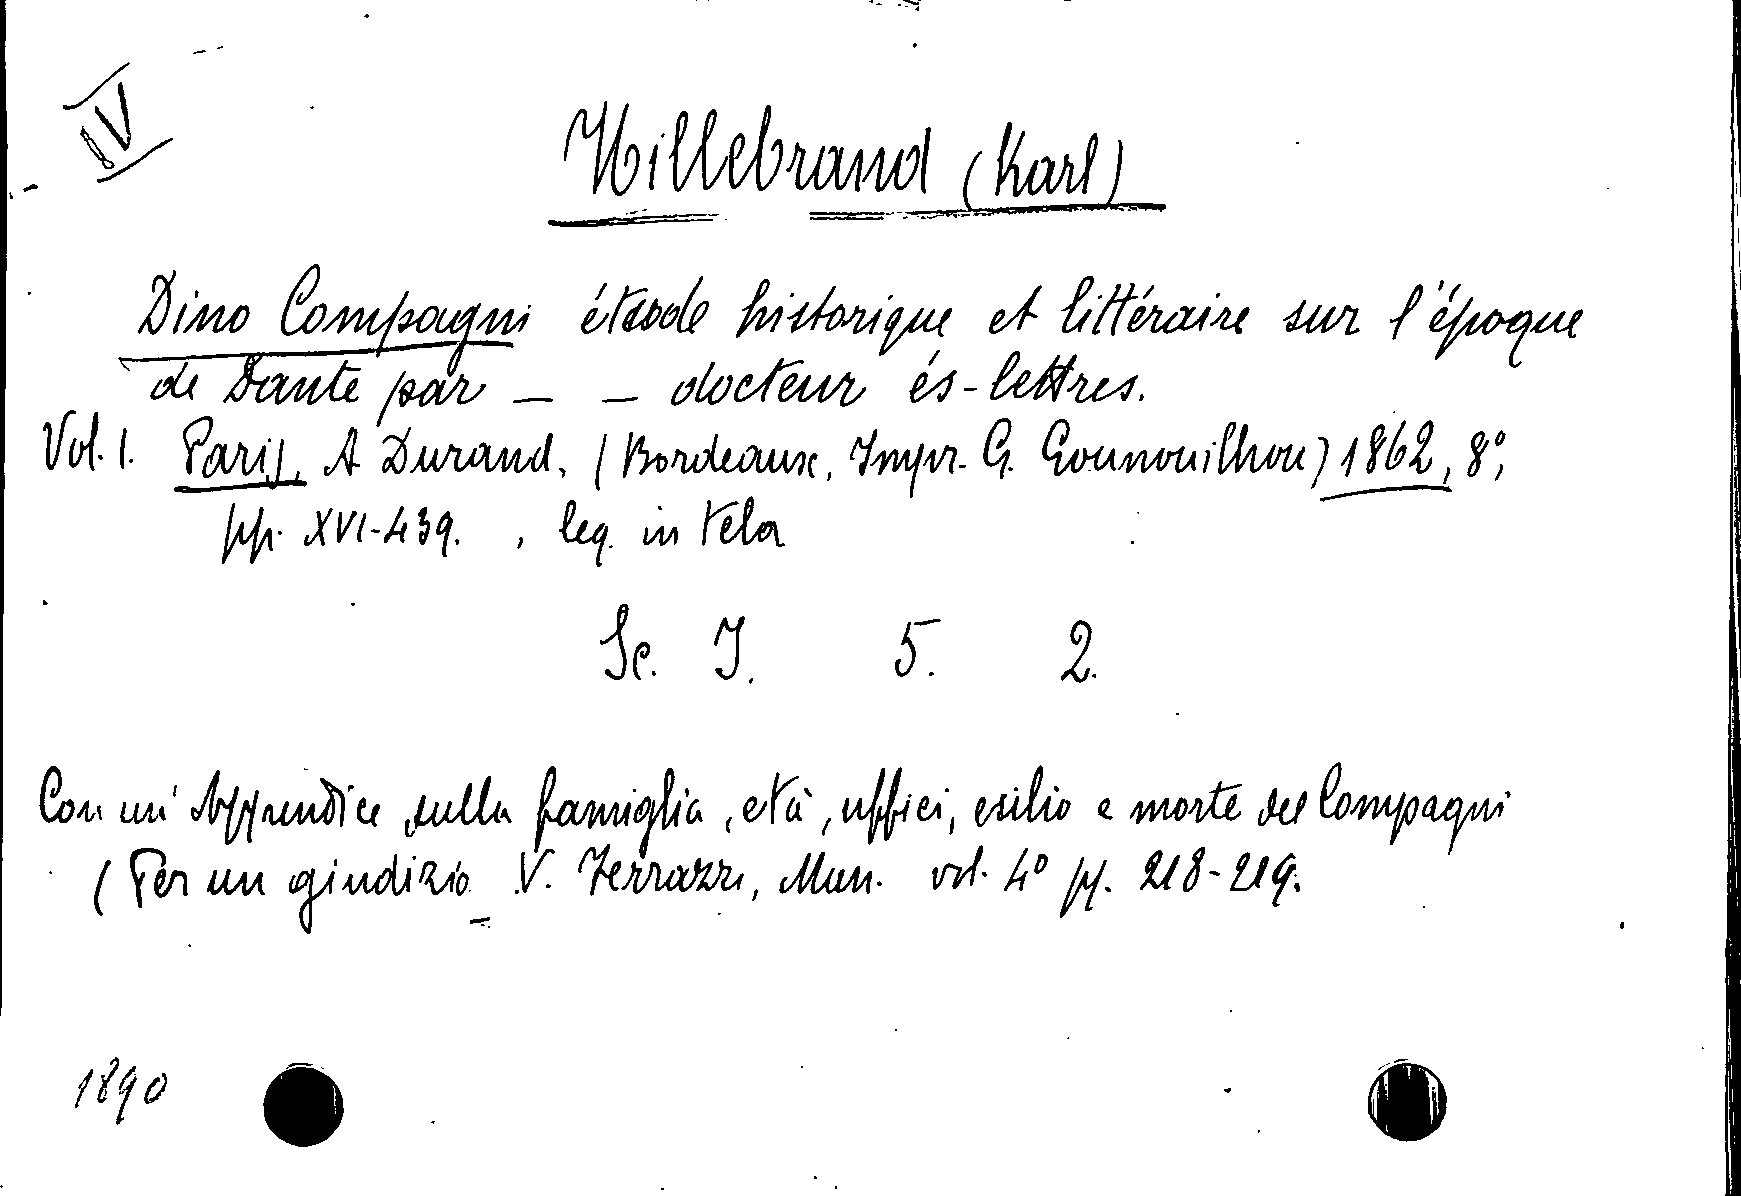 IV
Hillebrand (Karl)
Dino Compagni étude historique et littéraire sur l'époque
de Dante par _ _ docteur és-lettres.
Vol. 1. Paris, A Durand, (Bordeaux, Impr. G. Gounouilhou) 1862, 8°,
pp. XVI-439. , leg. in tela
Sc. I. 5. 2.
Con un' Appendice sulla famiglia, età, uffici, esilio e morte del Compagni
(Per un giudizio V. Ferrazzi, Man. vol. 4° pp. 218-219.
1890